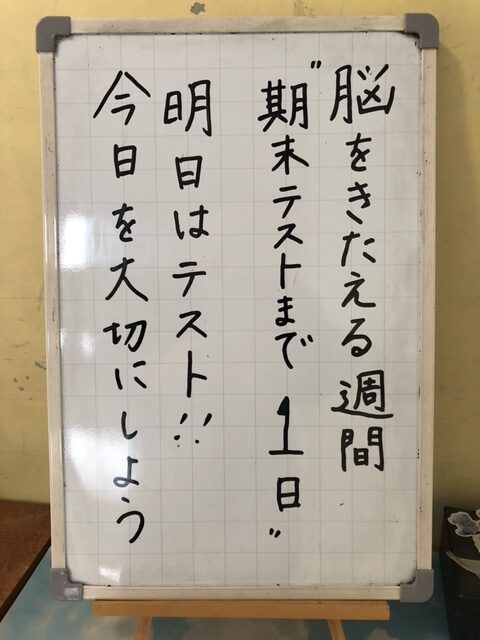 脳をきたえる週間
"期末テストまで1日"
明日はテスト!!
今日を大切にしよう